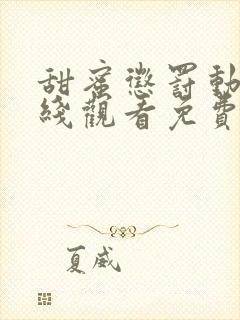 甜蜜懲罰動
綫觀看免費
夏威